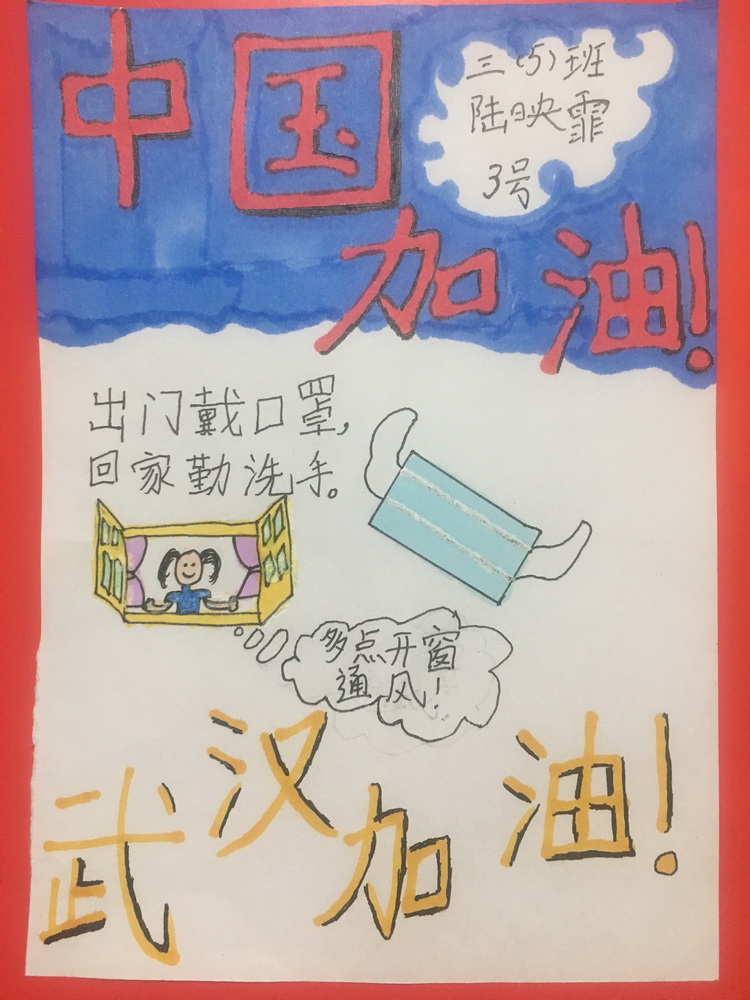 中国
加油!
三(5)班
陆映霏
3号
出门戴口罩,
回家勤洗手。
多点开窗
通风!
武汉加油!